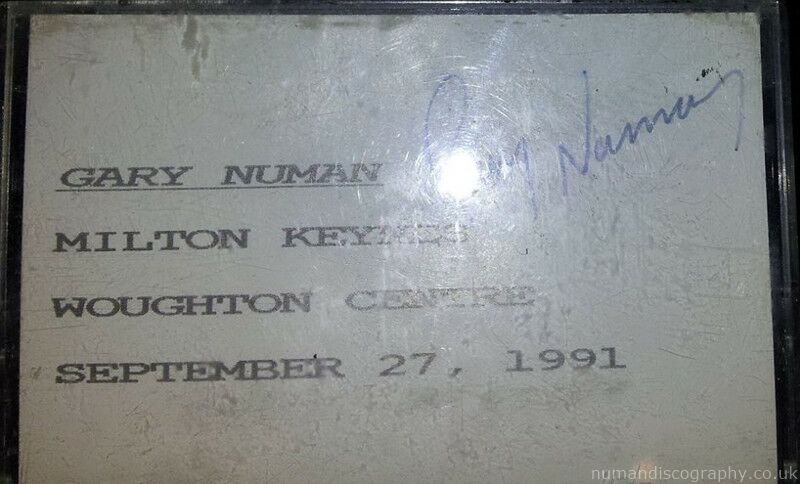 GARY NUMAN Gary Numan
MILTON KEYNES
WOUGHTON CENTRE
SEPTEMBER 27, 1991
numandiscography.co.uk